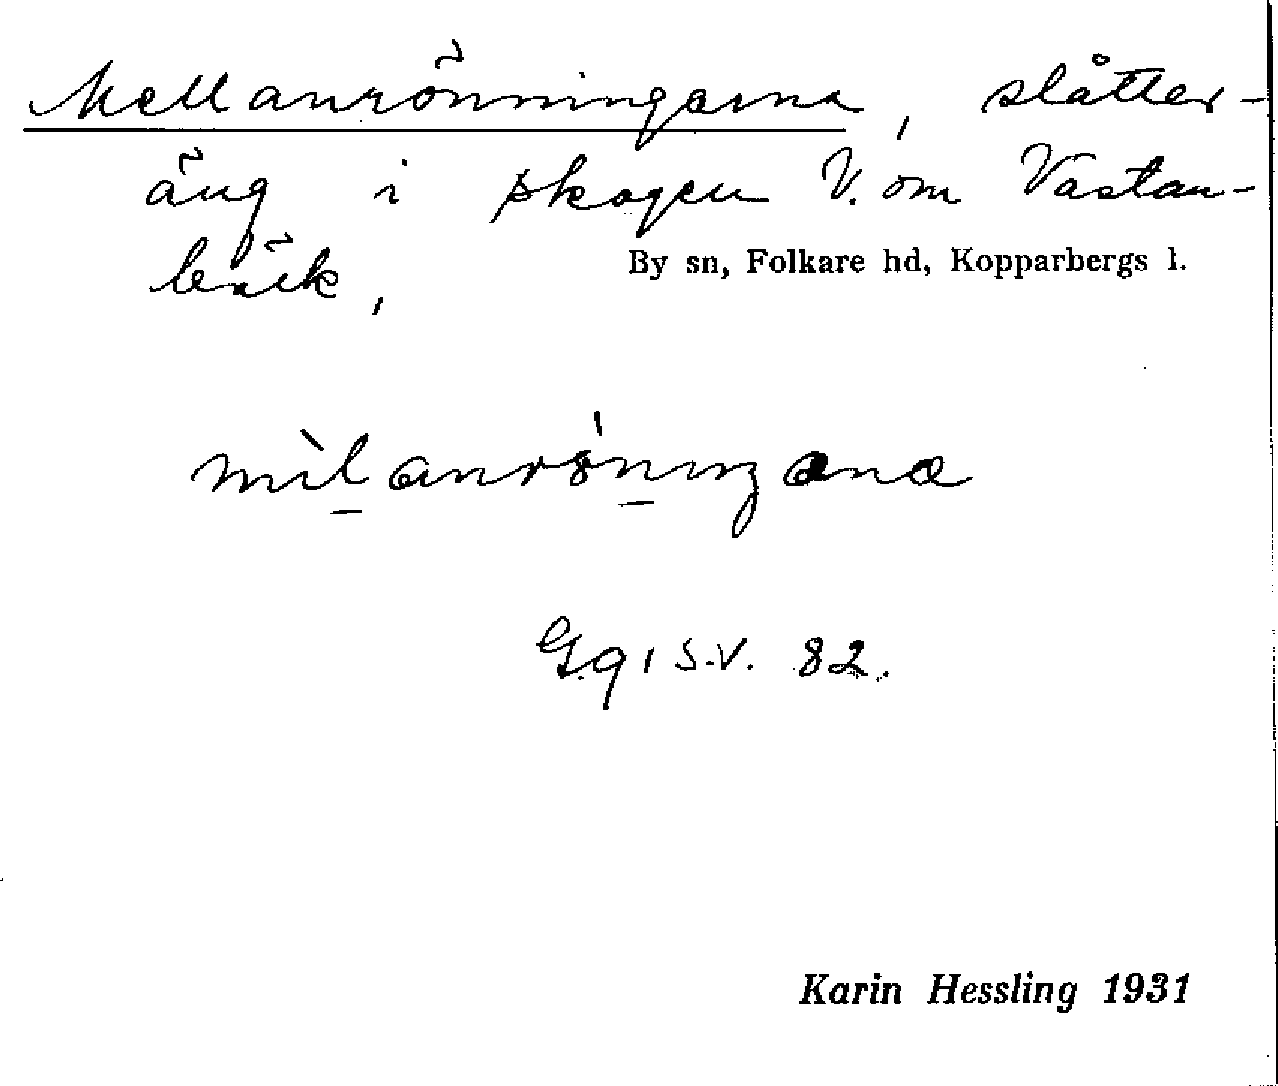 Mellanrönningarna, slåtter-
äng i skogen V. om Västan-
bäck,
By sn, Folkare hd, Kopparbergs l.
S.V. 82.
Karin Hessling 1931